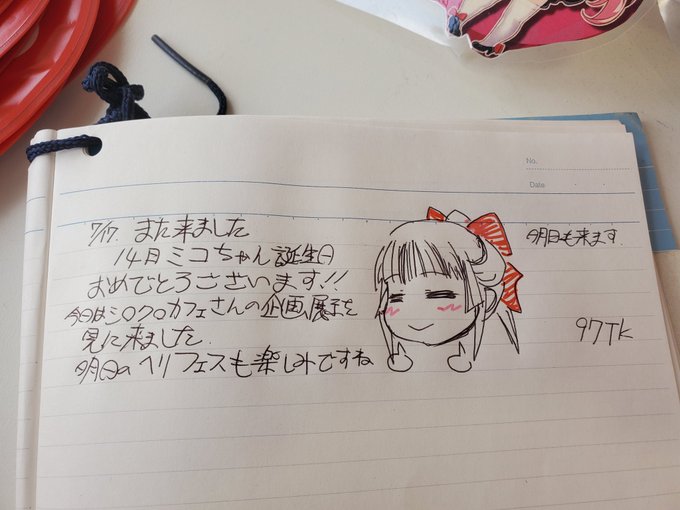 No.
Date
7/17. また来ました
14日ミコちゃん誕生日
おめでとうございます!!
今日はシロクロカフェさんの企画展示を
見に来ました.
明日のヘリフェスも楽しみですね
明日も来ます.
97TK